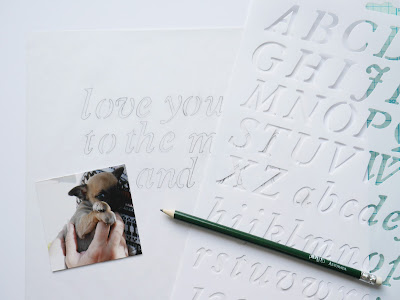 love you
to the m
and
ABCD
GHIJ
MNOP
STUVW
XZ abcde
hijklmno
rstuvw